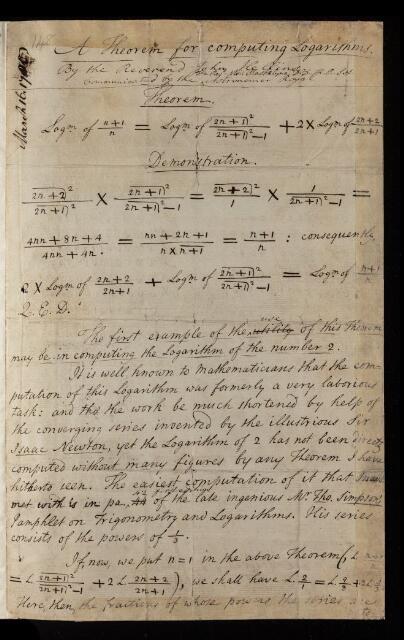 148
March 16. 1796
A Theorem for computing Logarithms.
By the Reverend John Hellins,
Communicated by the Astronomer Royal
Theorem.
Logm. of (n+1)/n = Logm. of (2n+1)²/((2n+1)²−1) + 2 × Logm. of (2n+2)/(2n+1)
Demonstration.
(2n+2)²/(2n+1)² × (2n+1)²/((2n+1)²−1) = (2n+2)²/1 × 1/((2n+1)²−1) =
(4nn+8n+4)/(4nn+4n.) = (nn+2n+1)/(n×n+1) = (n+1)/n : consequently,
2 × Logm. of (2n+2)/(2n+1) + Logm. of (2n+1)²/((2n+1)²−1) = Logm. of (n+1)/n
Q. E. D.
The first example of the use utility of this Theorem
may be in computing the Logarithm of the number 2.
It is well known to mathematicians that the com-
putation of this Logarithm was formerly a very laborious
task: and tho the work be much shortened by help of
the converging series invented by the illustrious Sir
Isaac Newton, yet the Logarithm of 2 has not been
computed without many figures by any Theorem I have
hitherto seen. The easiest computation of it that I have
met with is in pa. of the late ingenious Mr. Tho. Simpson's
Pamphlet on Trigonometry and Logarithms. His series
consists of the powers of
If, now, we put n = 1 in the above Theorem (L
= L (2n+1)²/((2n+1)²−1) + 2 L. (2n+2)/(2n+1)), we shall have L. 2/1 = L 9/8 + 2L 4/3.
Here, then, the fractions of whose powers the series